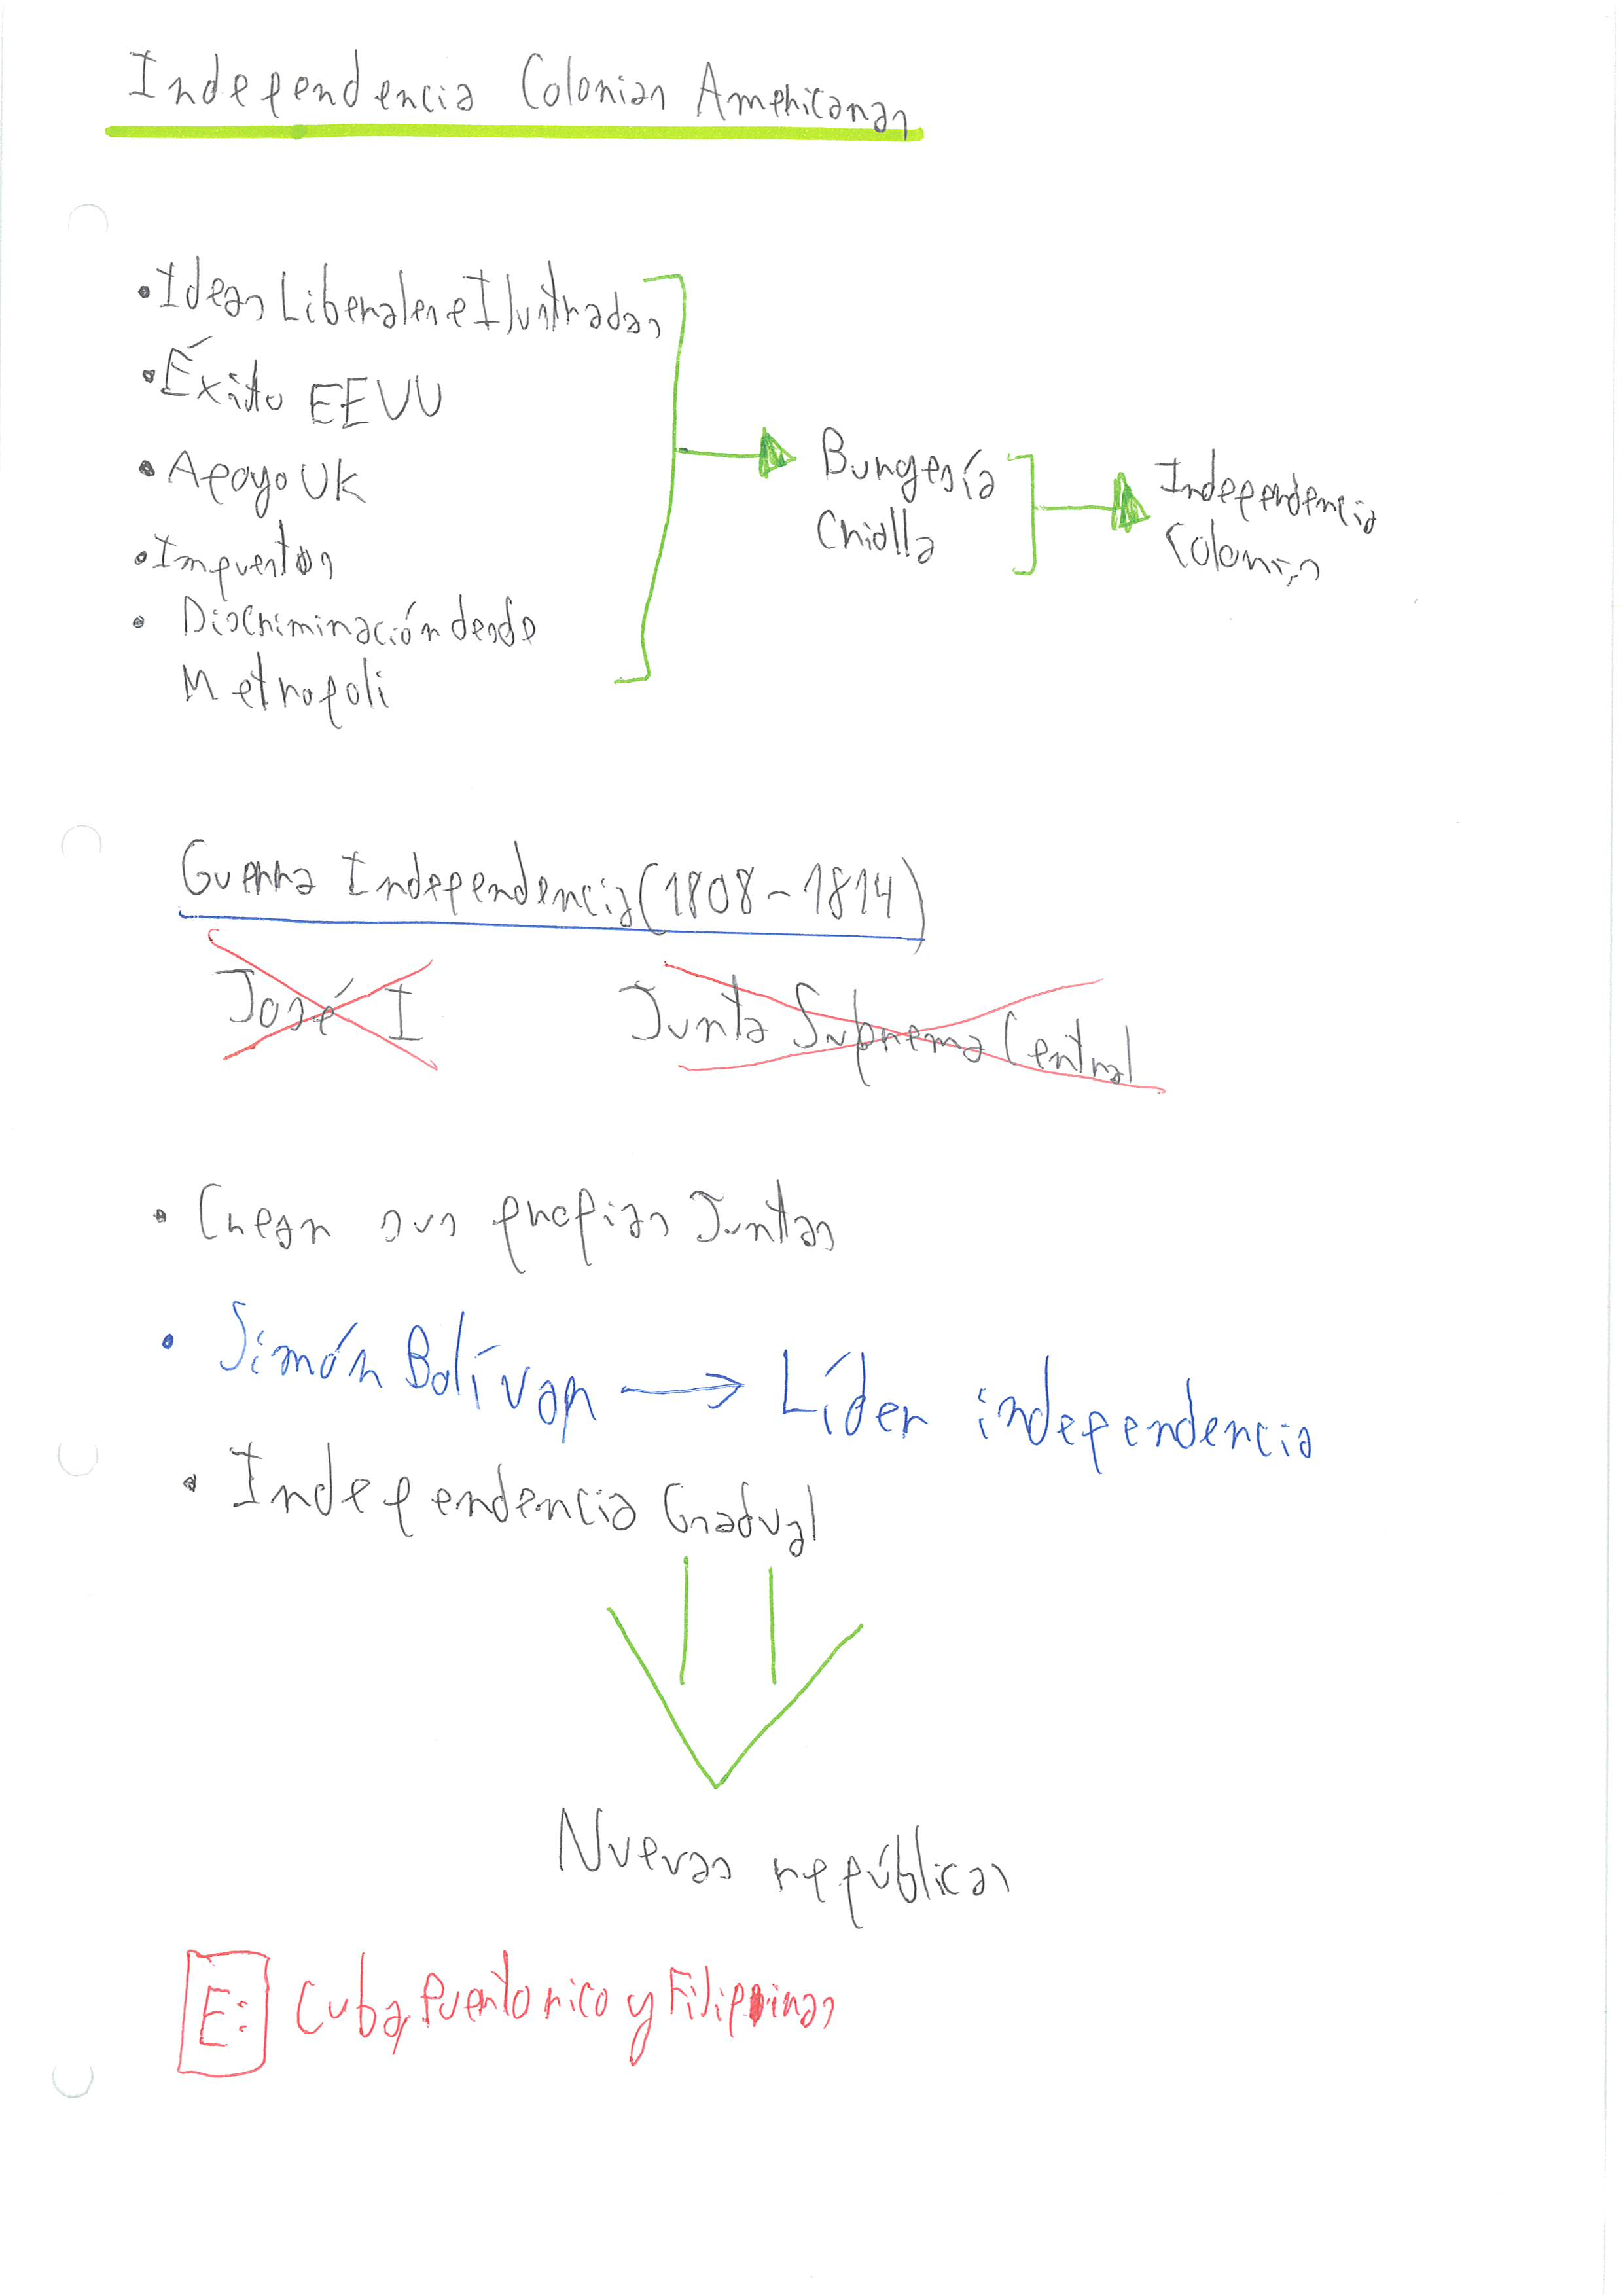 Independencia Colonias Americanas
• Ideas Liberales e Ilustradas
• Éxito EEUU
• Apoyo UK
• Impuestos
• Discriminación desde
Metropoli
Burgesía
Criolla
Independencia
Colonias
Guerra Independencia (1808-1814)
José I
Junta Suprema Central
• Crean sus propias Juntas
• Simón Bolívar → Líder independencia
• Independencia Gradual
Nuevas repúblicas
E: Cuba, Puerto rico y Filipinas